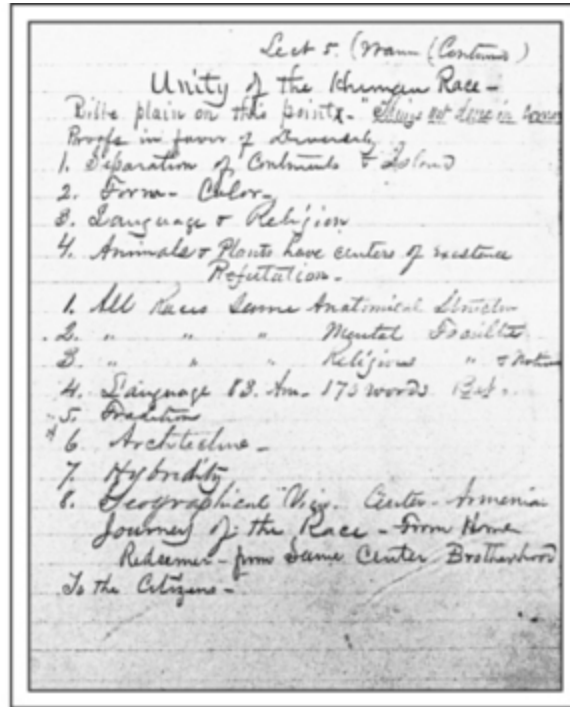 Lect 5. (Mann (Continued)
Unity of the Human Race -
Bible plain on this point - "
Proofs in favor of Diversity
1. Separation of Continents & Island
2. Form - Color -
3. Language & Religion
4. Animals & Plants have centers of existence
Refutation -
1. All Races Same Anatomical Structure
2. " " " Mental Faculties
3. " " " Religious " &
4. Language 83. Am. 173 words
5. Traditions
6. Architecture -
7. Hybridity
8. Geographical View. Center Armenia
Journey of the Race - From Home
Redeemer - from Same Center Brotherhood
To the Citizens -